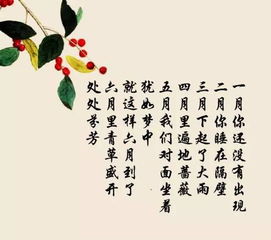 一月你还没有出现
二月你睡在隔壁
三月下起了大雨
四月里遍地蔷薇
五月我们对面坐着
犹如梦中
就这样六月到了
六月里青草盛开
处处芬芳